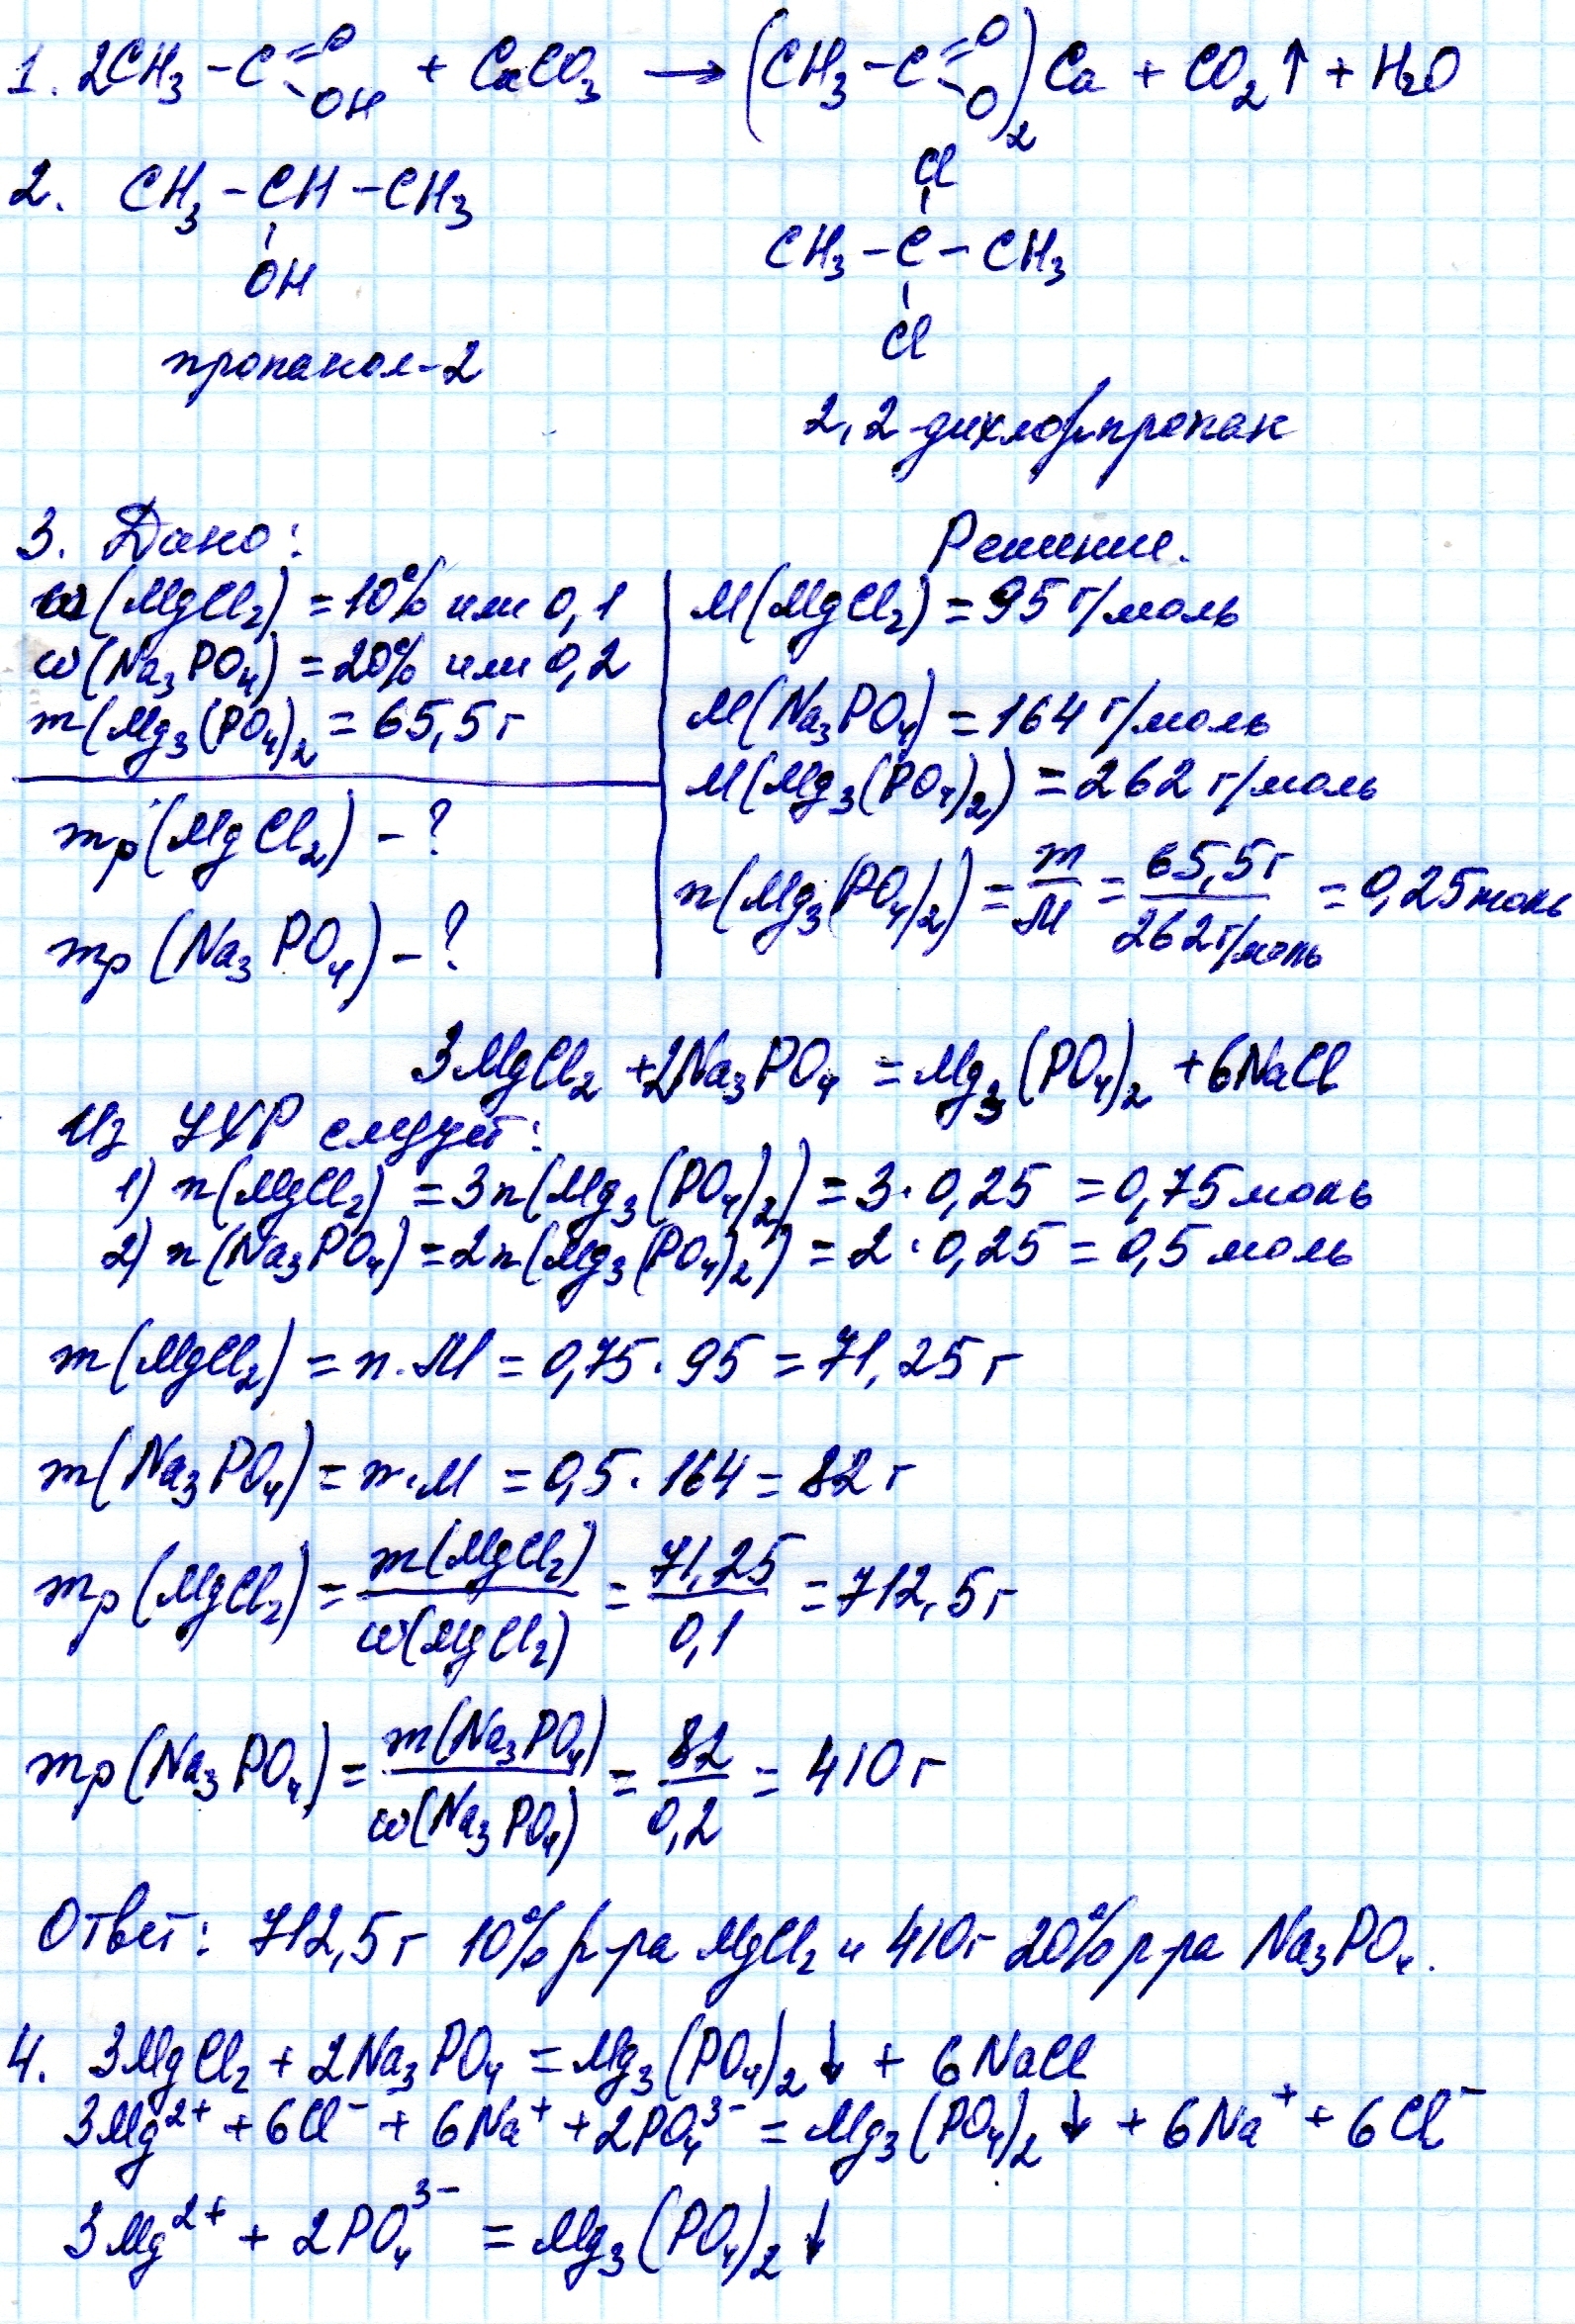 1. 2CH₃-C=O-OH + CaCO₃ → (CH₃-C=O-O)₂Ca + CO₂↑ + H₂O
2. CH₃-CH-CH₃
OH
пропанол-2
Cl
CH₃-C-CH₃
Cl
2,2-дихлорпропан
3. Дано:
ω(MgCl₂) = 10% или 0,1
ω(Na₃PO₄) = 20% или 0,2
m(Mg₃(PO₄)₂ = 65,5 г
mр(MgCl₂) - ?
mр(Na₃PO₄) - ?
Решение.
M(MgCl₂) = 95 г/моль
M(Na₃PO₄) = 164 г/моль
M(Mg₃(PO₄)₂) = 262 г/моль
n(Mg₃(PO₄)₂) = m/M = 65,5 г/262 г/моль = 0,25 моль
3MgCl₂ + 2Na₃PO₄ = Mg₃(PO₄)₂ + 6NaCl
Из УХР следует:
1) n(MgCl₂) = 3n(Mg₃(PO₄)₂) = 3·0,25 = 0,75 моль
2) n(Na₃PO₄) = 2n(Mg₃(PO₄)₂) = 2·0,25 = 0,5 моль
m(MgCl₂) = n·M = 0,75·95 = 71,25 г
m(Na₃PO₄) = n·M = 0,5·164 = 82 г
mр(MgCl₂) = m(MgCl₂)/ω(MgCl₂) = 71,25/0,1 = 712,5 г
mр(Na₃PO₄) = m(Na₃PO₄)/ω(Na₃PO₄) = 82/0,2 = 410 г
Ответ: 712,5 г 10% р-ра MgCl₂ и 410 г 20% р-ра Na₃PO₄.
4. 3MgCl₂ + 2Na₃PO₄ = Mg₃(PO₄)₂↓ + 6NaCl
3Mg²⁺ + 6Cl⁻ + 6Na⁺ + 2PO₄³⁻ = Mg₃(PO₄)₂↓ + 6Na⁺ + 6Cl⁻
3Mg²⁺ + 2PO₄³⁻ = Mg₃(PO₄)₂↓